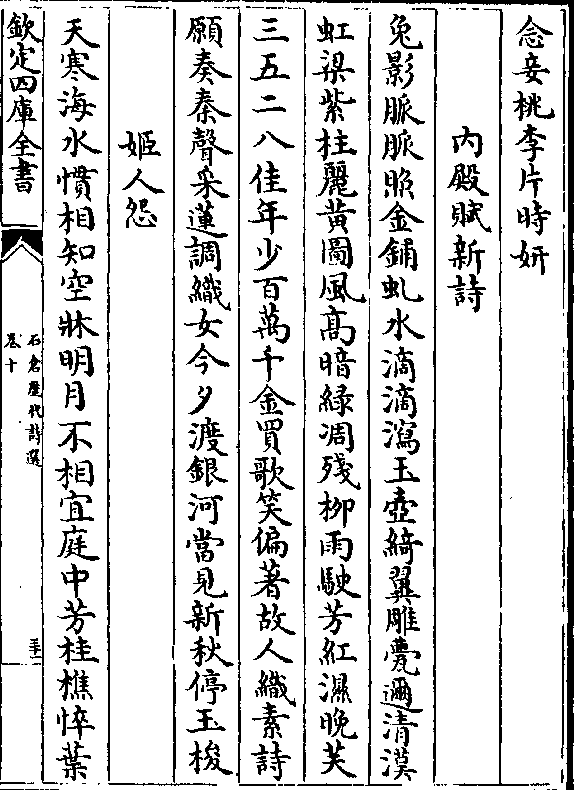 念妾桃李片時妍
内殿賦新詩
兔影脈脈照金鋪虬水滴滴瀉玉壺綺翼雕甍邇清漠
虹梁紫柱麗黃圖風髙暗緑凋殘柳雨駛芳紅濕晚芙
三五二八佳年少百萬千金買歌笑偏著故人織素詩
願奏秦聲采蓮調織女今夕渡銀河當見新秋停玉梭
姬人怨
天寒海水慣相知空牀明月不相宜庭中芳桂憔悴葉
欽定四庫全書
石倉歷代詩選
卷十